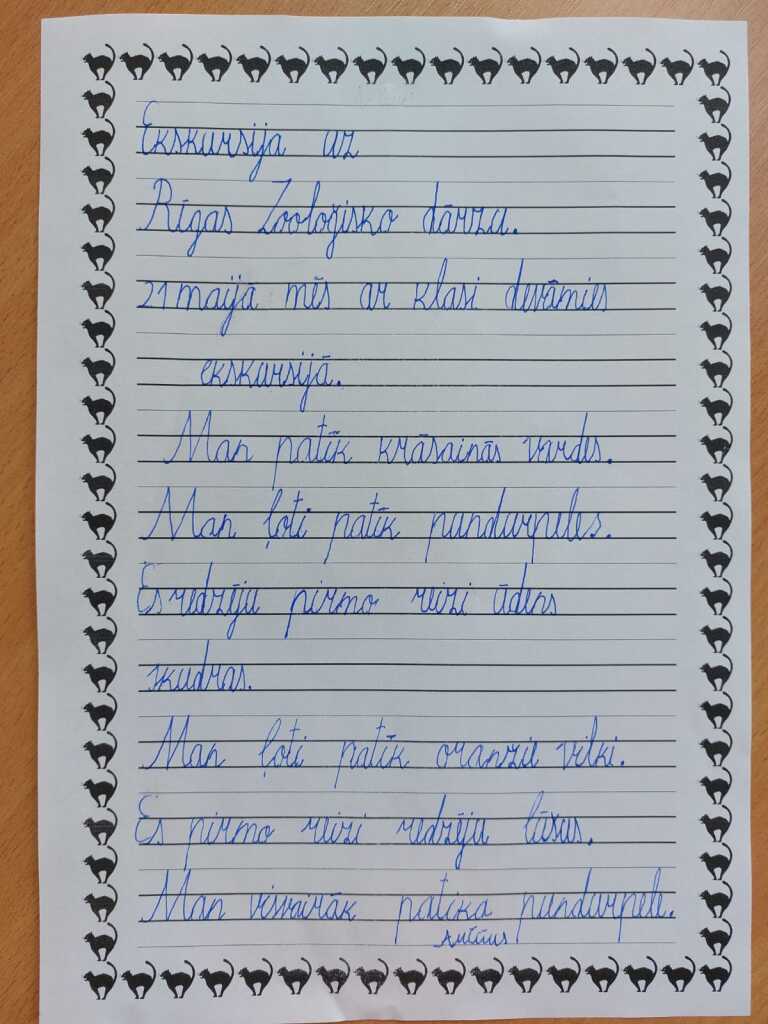 Ekskursija uz
Rīgas Zooloģisko dārzu.
21 maijā mēs ar klasi devāmies
ekskursijā.
Man patīk krāsainās vardes.
Man ļoti patīk pundurpeles.
Es redzēju pirmo reizi ūdens
skudras.
Man ļoti patīk oranzie vilki.
Es pirmo reizi redzēju lūsus.
Man visvairāk patika pundurpele.